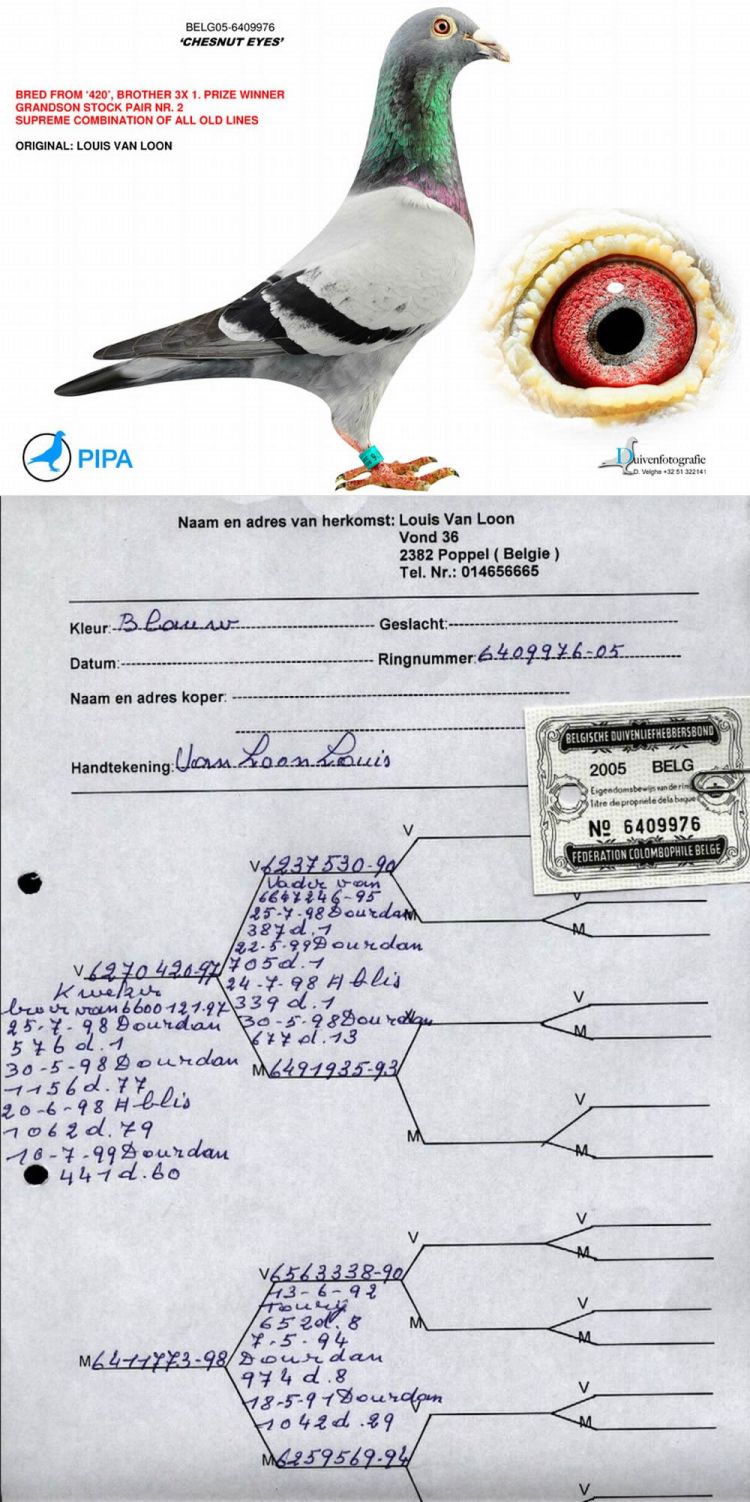 BELG05-6409976
'CHESNUT EYES'
BRED FROM '420', BROTHER 3X 1. PRIZE WINNER
GRANDSON STOCK PAIR NR. 2
SUPREME COMBINATION OF ALL OLD LINES
ORIGINAL: LOUIS VAN LOON
PIPA
Duivenfotografie
D. Velghe +32 51 322141
Naam en adres van herkomst: Louis Van Loon
Vond 36
2382 Poppel ( Belgie )
Tel. Nr.: 014656665
Kleur: Blauw Geslacht:
Datum: Ringnummer: 6409976-05
Naam en adres koper:
Handtekening: Van Loon Louis
BELGISCHE DUIVENLIEFHEBBERSBOND
2005 BELG
Eigendomsbewijs van de ring
titre de propriété de la bague
Nº 6409976
FEDERATION COLOMBOPHILE BELGE
V
V 6237530-90
Vader van
6647246-95
25-7-98 Dourdan
387 d.1
22-5-99 Dourdan
705 d.1
24-7-98 Ablis
339 d.1
30-5-98 Dourdan
677 d.13
M 6491935-93
V 6270420-97
Kweker
broer van 6600121.97
25-7-98 Dourdan
576 d.1
30-5-98 Dourdan
1156 d.77
20-6-98 Ablis
1062 d.79
10-7-99 Dourdan
441 d.60
M
V
M
V
M
M
V
M
V 6563338-90
13-6-92
Toury
652 d.8
7.5.94
Dourdan
974 d.8
18-5-91 Dourdan
1042 d.29
M 6259569-94
M 6411773-98
V
M
V
V
M
V
M
V
M
V